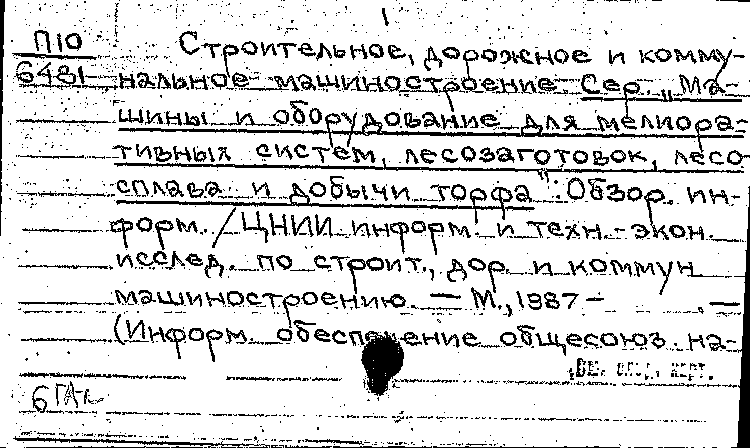 1
П10 Строительное, дорожное и комму-
6481 нальное машиностроение Сер. „Ма-
шины и оборудование для мелиора-
тивных систем, лесозаготовок, лесо
сплава и добычи торфа": Обзор. ин-
форм. / ЦНИИ информ. и техн.-экон.
исслед. по строит., дор. и коммун
машиностроению. — М., 1987 – . —
(Информ. обеспечение общесоюз. на-
См. след. карт.